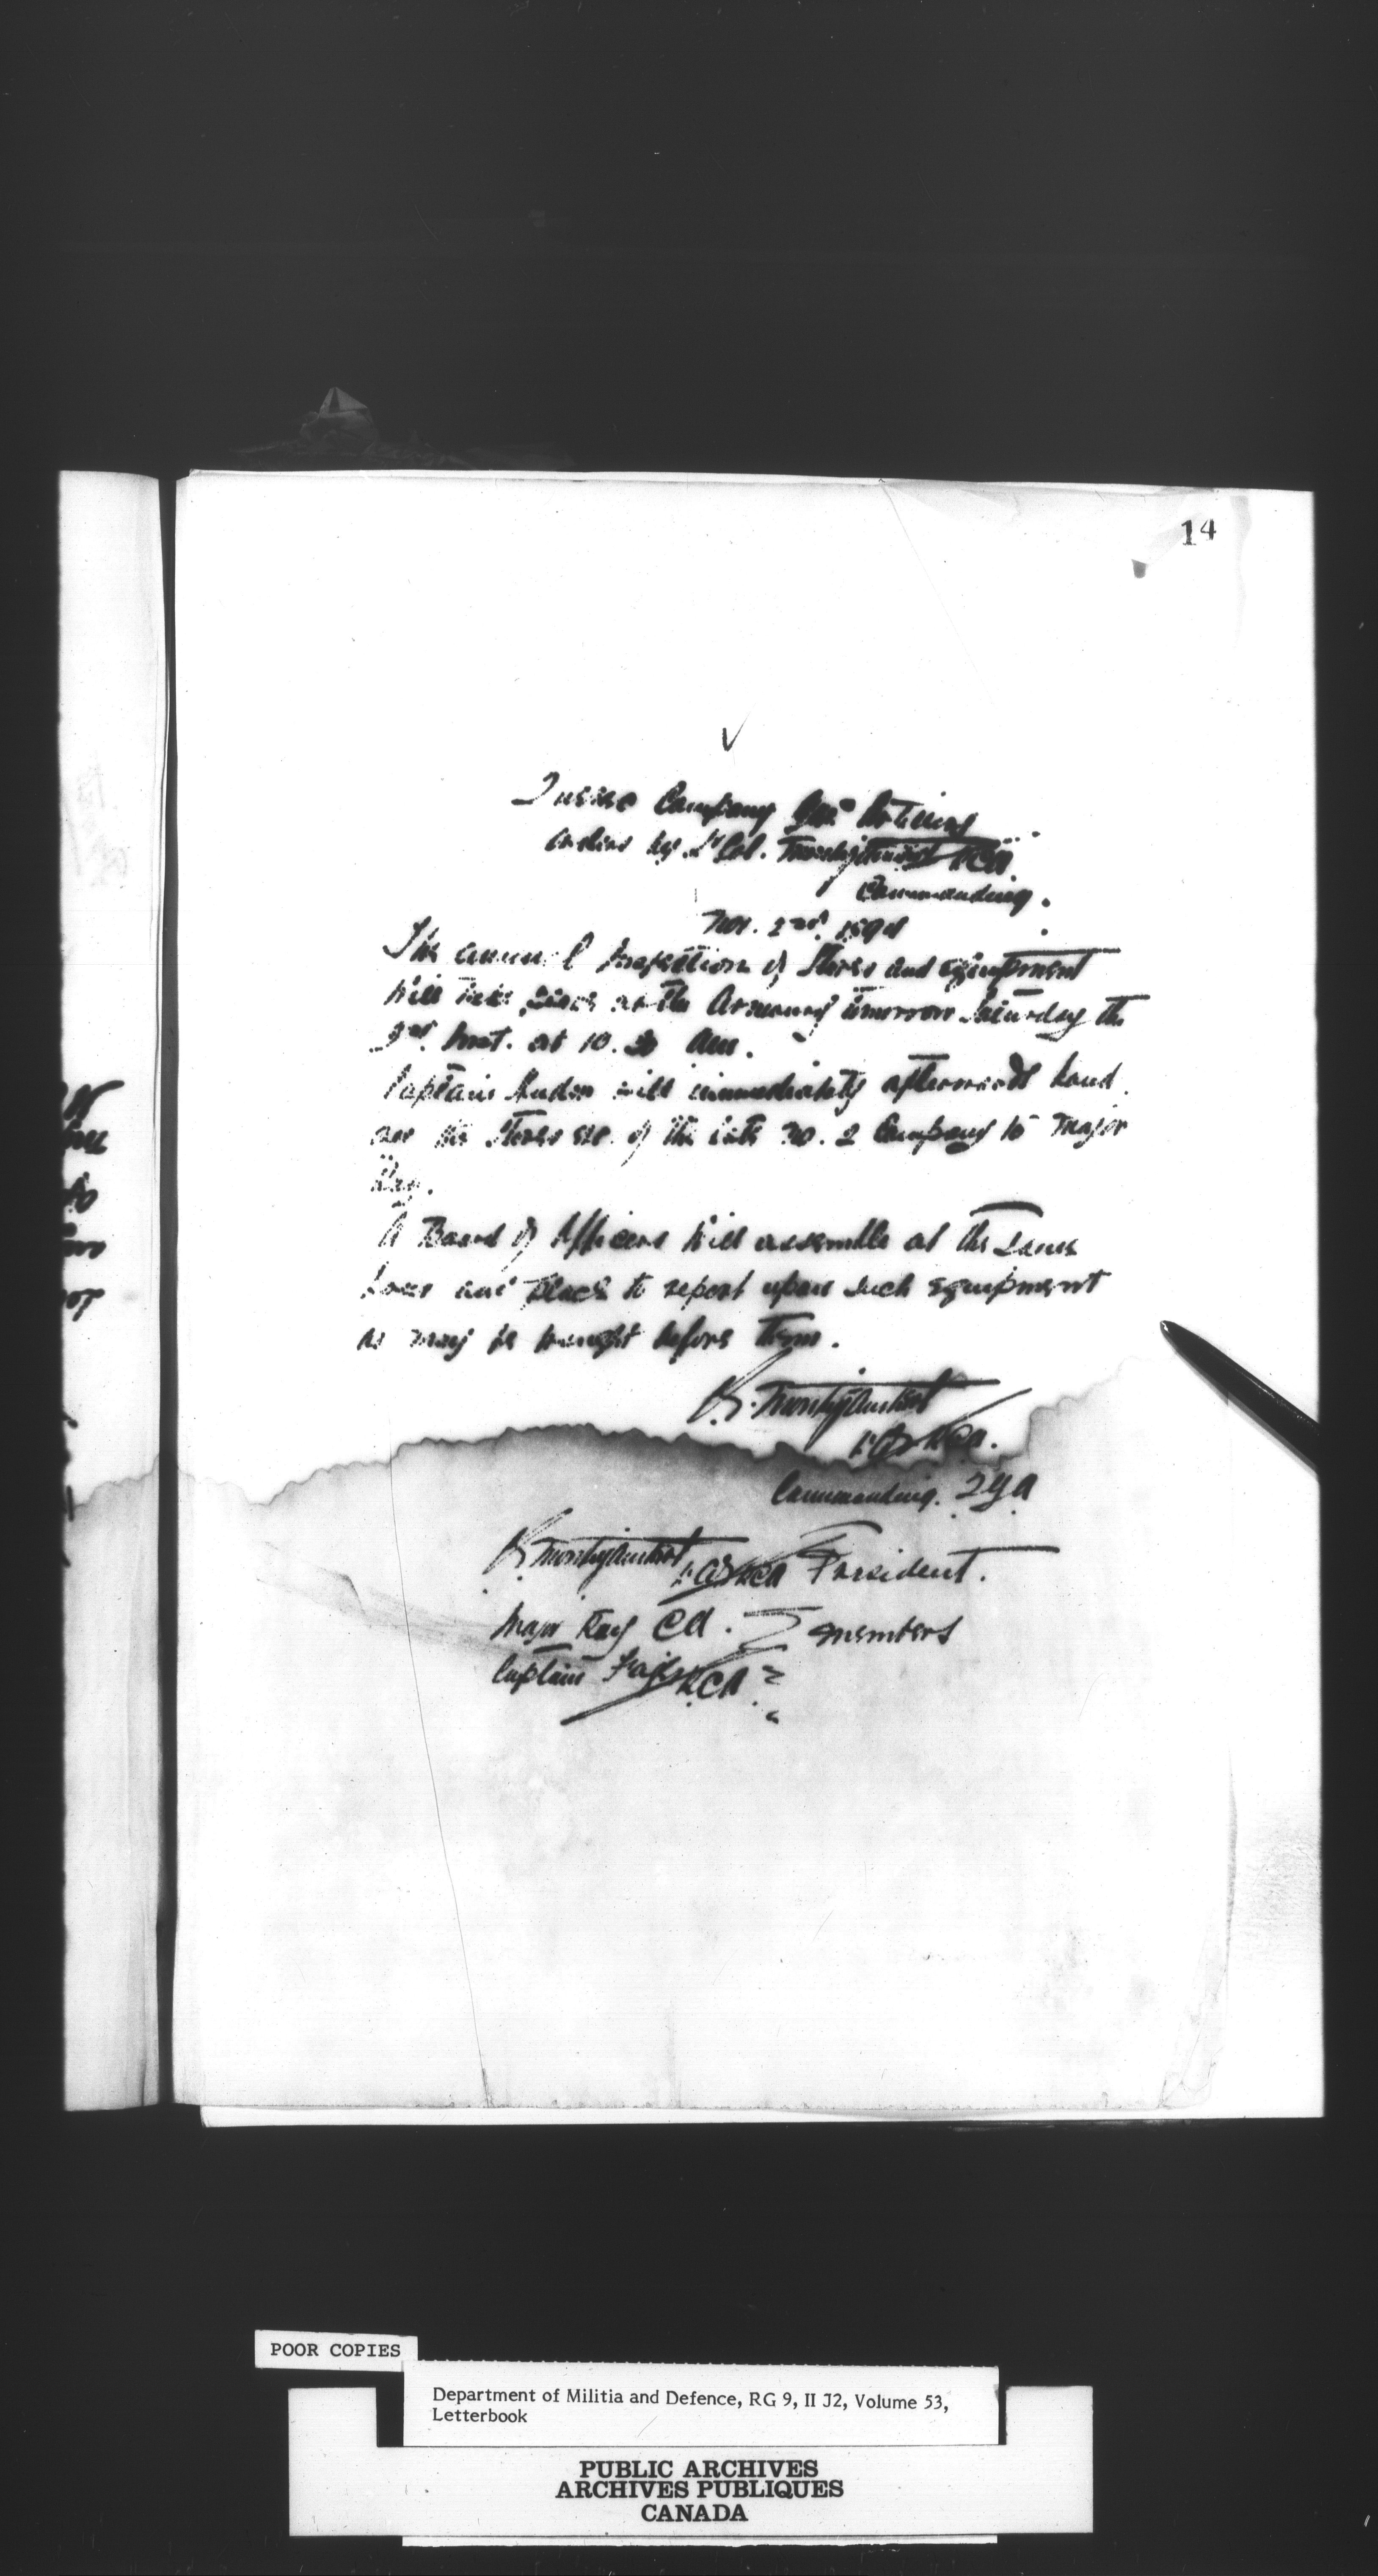 14
Company Gar. Artillery
Orders by Lt Col. Montizambert RCA
Commanding.
Nov. 2nd. 1894
The annual Inspection of Stores and equipment
will take place at the Armoury tomorrow Saturday the
3rd. Inst. at 10. am.
Captain will immediately afterwards hand
over the Stores etc. of the late No. 2 Company to Major
Ray.
A Board of Officers will assemble at the same
hour and place to report upon such equipment
as may be brought before them.
Montizambert
Lt Col RCA.
Commanding.
Montizambert
Lt Col RCA President.
Major Ray CA. members
Captain RCA
POOR COPIES
Department of Militia and Defence, RG 9, II J2, Volume 53,
Letterbook
PUBLIC ARCHIVES
ARCHIVES PUBLIQUES
CANADA